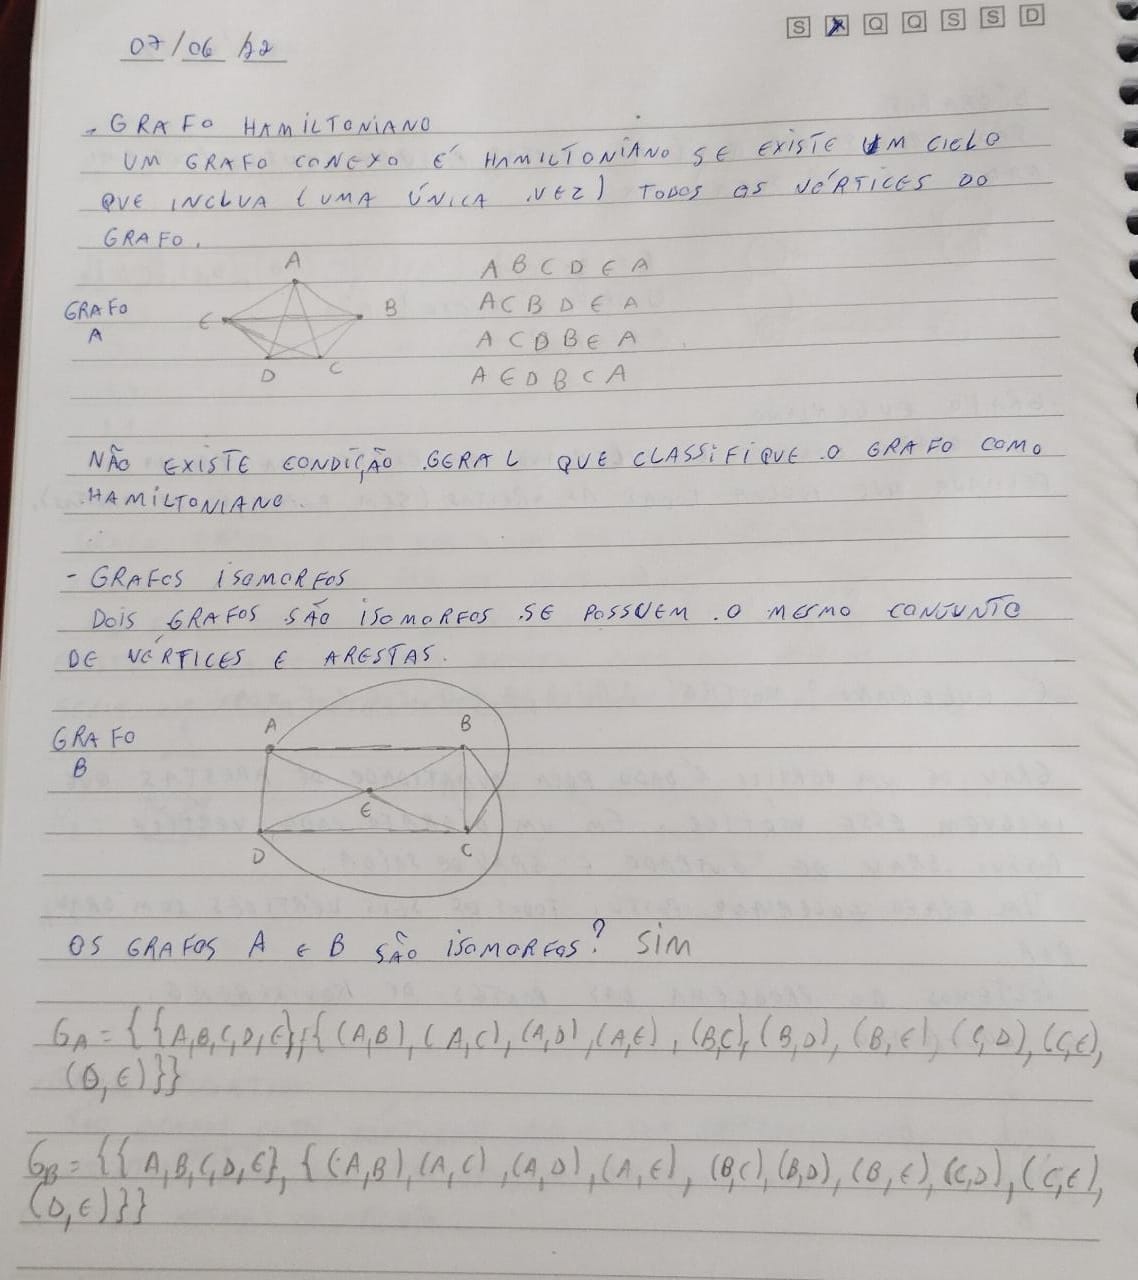 S X Q Q S S D
07/06/22
- GRAFO HAMILTONIANO
UM GRAFO CONEXO É HAMILTONIANO SE EXISTE UM CICLO
QUE INCLUA (UMA ÚNICA VEZ) TODOS OS VÉRTICES DO
GRAFO.
A
GRAFO
A
E
B
D
C
A B C D E A
A C B D E A
A C D B E A
A E D B C A
NÃO EXISTE CONDIÇÃO GERAL QUE CLASSIFIQUE O GRAFO COMO
HAMILTONIANO.
- GRAFOS ISOMORFOS
DOIS GRAFOS SÃO ISOMORFOS SE POSSUEM O MESMO CONJUNTO
DE VÉRTICES E ARESTAS.
GRAFO
B
A
B
E
D
C
OS GRAFOS A E B SÃO ISOMORFOS? SIM
GA = {{A,B,C,D,E},{(A,B),(A,C),(A,D),(A,E),(B,C),(B,D),(B,E),(C,D),(C,E),
(D,E)}}
GB = {{A,B,C,D,E},{(A,B),(A,C),(A,D),(A,E),(B,C),(B,D),(B,E),(C,D),(C,E),
(D,E)}}